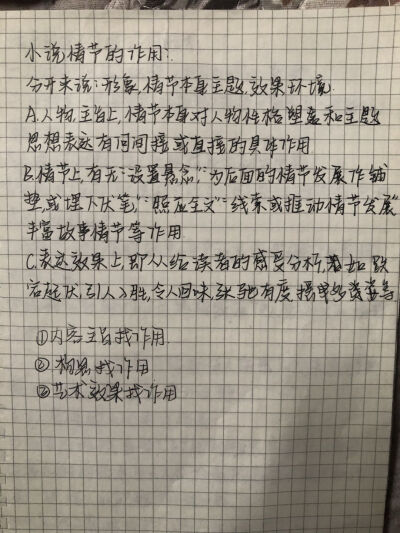 小说情节的作用:
分开来说:形象,情节本身,主题,效果,环境.
A.人物.主旨上,情节本身对人物性格塑造和主题
思想表达有何间接或直接的具体作用
B.情节上,有无"设置悬念","为后面的情节发展作铺
垫或埋下伏笔","照应全文"线索或推动情节发展"
丰富故事情节等作用.
C.表达效果上,即从给读者的感受分析,如跌
宕起伏,引人入胜,令人回味,张弛有度等
①内容主旨找作用.
②构思找作用
③艺术效果找作用